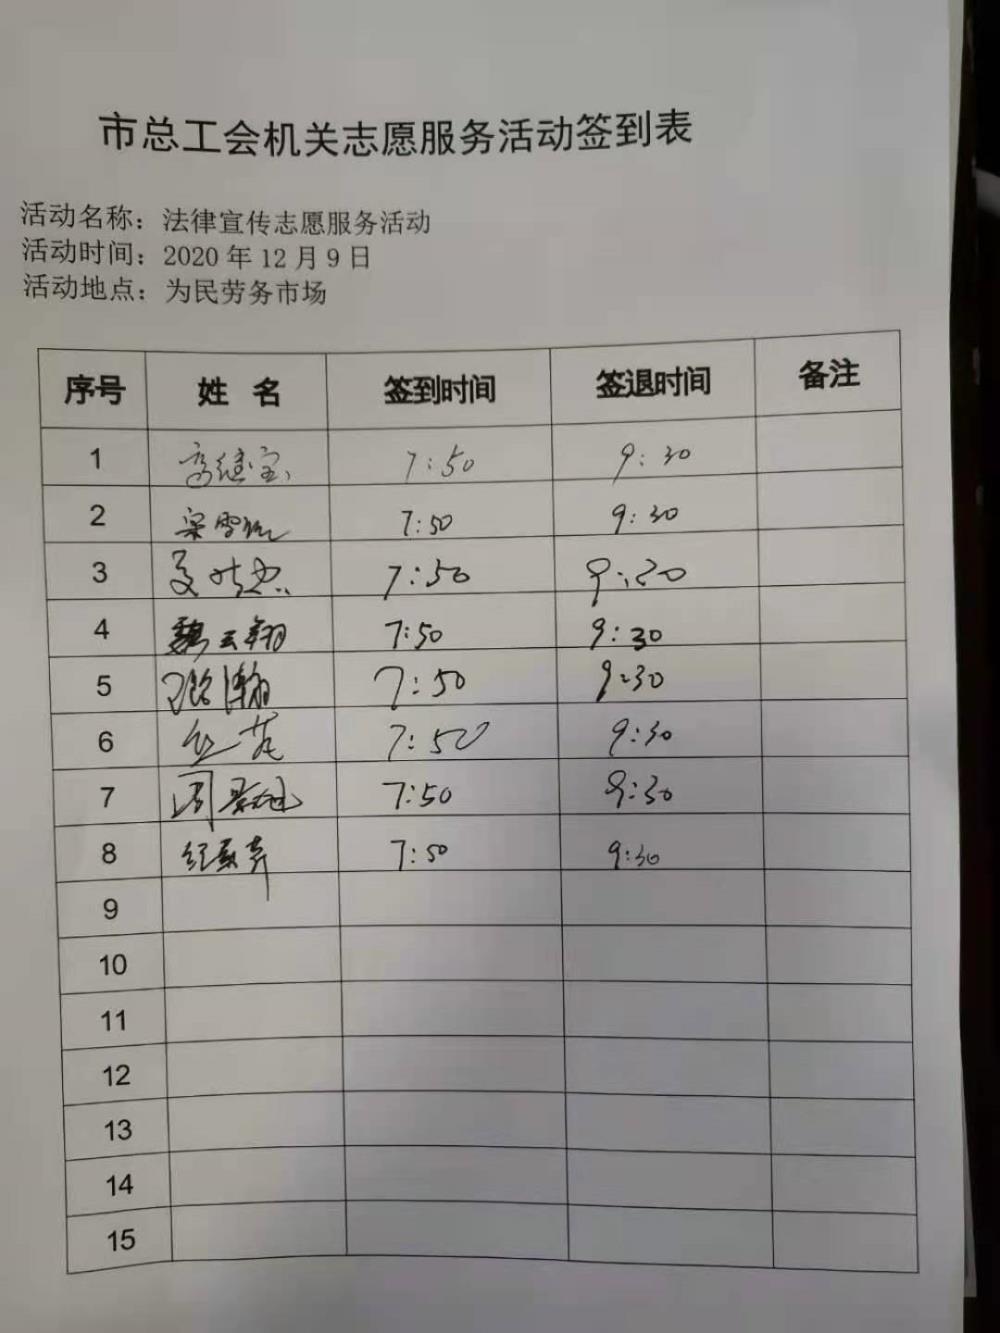 市总工会机关志愿服务活动签到表
活动名称：法律宣传志愿服务活动
活动时间：2020 年 12 月 9 日
活动地点：为民劳务市场
序号 姓 名 签到时间 签退时间 备注
1 7:50 9:30
2 7:50 9:30
3 7:50
4 魏云翔 7:50 9:30
5 7:50 9:30
6 7:50 9:30
7 7:50 9:30
8 7:50 9:30
9
10
11
12
13
14
15